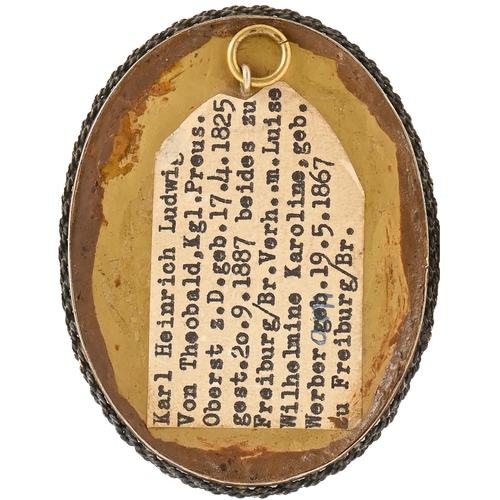 Karl Heinrich Ludwig
Von Theobald,Kgl.Preus.
Oberst z.D.geb.17.4.1825
gest.20.9.1887 beides zu
Freiburg/Br.Verh.m.Luise
Wilhelmine Karoline,geb.
Werber gen.19.5.1867
zu Freiburg/Br.